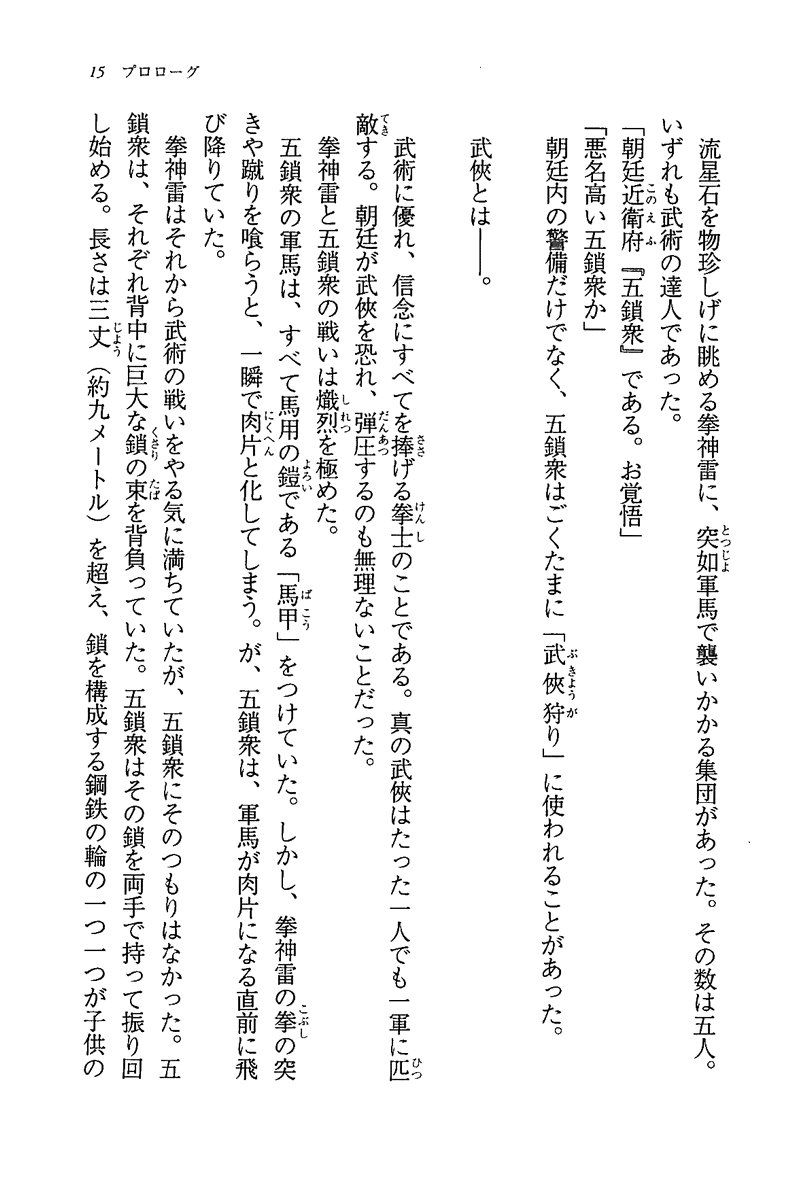 15 プロローグ
流星石を物珍しげに眺める拳神雷に、突如軍馬で襲いかかる集団があった。その数は五人。
いずれも武術の達人であった。
「朝廷近衛府『五鎖衆』である。お覚悟」
「悪名高い五鎖衆か」
朝廷内の警備だけでなく、五鎖衆はごくたまに「武俠狩り」に使われることがあった。
武俠とは――。
武術に優れ、信念にすべてを捧げる拳士のことである。真の武俠はたった一人でも一軍に匹
敵する。朝廷が武俠を恐れ、弾圧するのも無理ないことだった。
拳神雷と五鎖衆の戦いは熾烈を極めた。
五鎖衆の軍馬は、すべて馬用の鎧である「馬甲」をつけていた。しかし、拳神雷の拳の突
きや蹴りを喰らうと、一瞬で肉片と化してしまう。が、五鎖衆は、軍馬が肉片になる直前に飛
び降りていた。
拳神雷はそれから武術の戦いをやる気に満ちていたが、五鎖衆にそのつもりはなかった。五
鎖衆は、それぞれ背中に巨大な鎖の束を背負っていた。五鎖衆はその鎖を両手で持って振り回
し始める。長さは三丈（約九メートル）を超え、鎖を構成する鋼鉄の輪の一つ一つが子供の